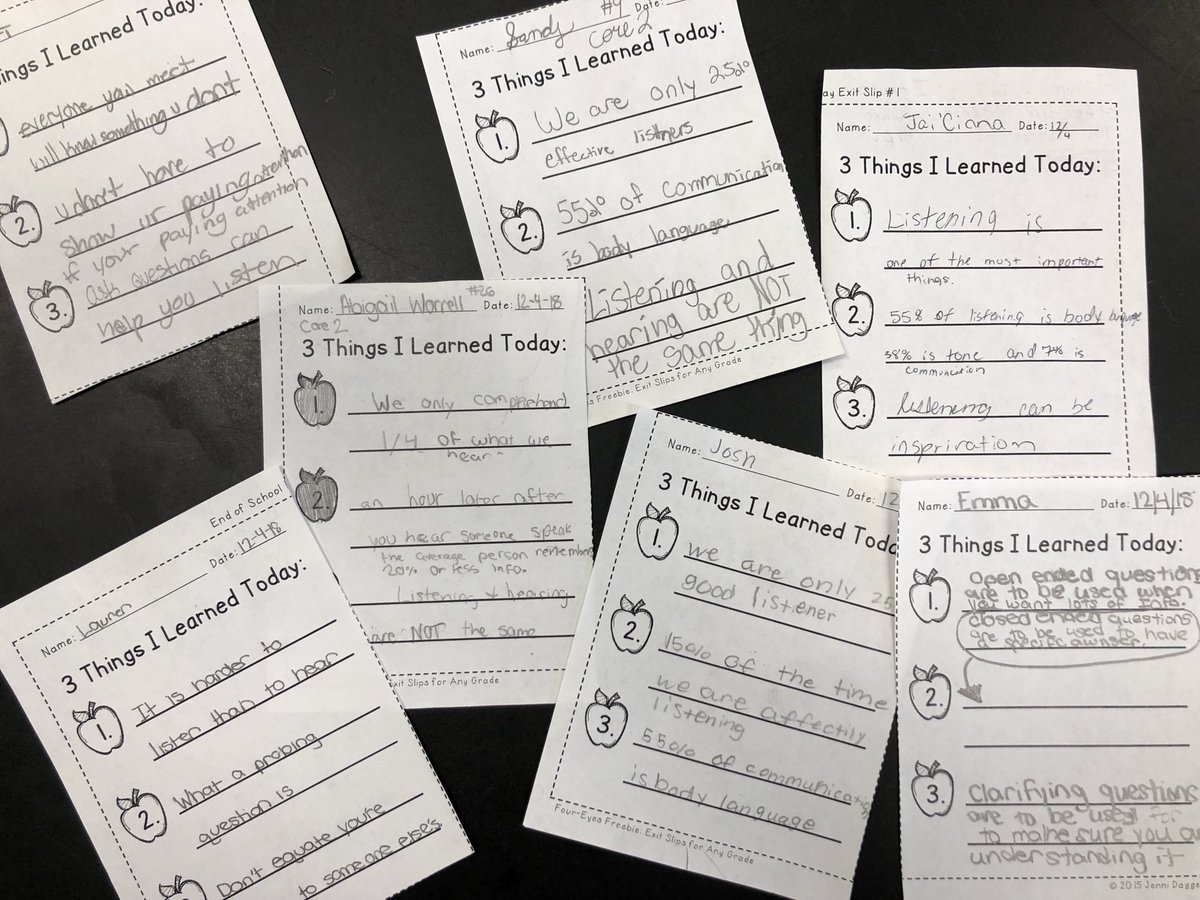 Things I Learned Today:
everyone you meet
will know something u don't
2.
u dont have to
show ur paying attention
if your paying attention
3.
ask questions can
help you listen
Name: Sandy #4 Date:
Core 2
3 Things I Learned Today:
1.
We are only 25%
effective listners
2.
55% of communication
is body language
Listening and
hearing are NOT
the same thing
s Freebie: Exit Slips for Any Grade
ay Exit Slip #1
Name: Jai'Ciana Date: 12/4
3 Things I Learned Today:
1.
Listening is
one of the must important
things.
2.
55% of listening is body language
38% is tone and 7% is
communication
3.
listening can be
inspriration
Name: Abigail Worrell #26 Date: 12-4-18
Core 2
3 Things I Learned Today:
1.
We only comprehend
1/4 of what we
hear
2.
an hour later after
you hear someone speak
the average person remembers
20% or less info.
Listening & hearing
are NOT the same
xit Slips for Any Grade
End of School
Name: Lauren Date: 12-4-18
3 Things I Learned Today:
1.
It is harder to
listen than to hear
2.
What a probing
question is
Don't equate you're
to someone else's
Name: Josh Date: 12
3 Things I Learned Toda
1.
we are only 25
good listener
2.
15% of the time
we are affectily
listening
3.
55% of communication
is body language
Four-Eyes Freebie: Exit Slips for Any Grade
Name: Emma Date: 12/4/18
3 Things I Learned Today:
1.
Open ended questions
are to be used when
you want lots of info.
closed ended questions
are to be used to have
a specific awnser.
2.
3.
Clarifying questions
are to be used for
to make sure you are
understanding it
© 2015 Jenni Dagge